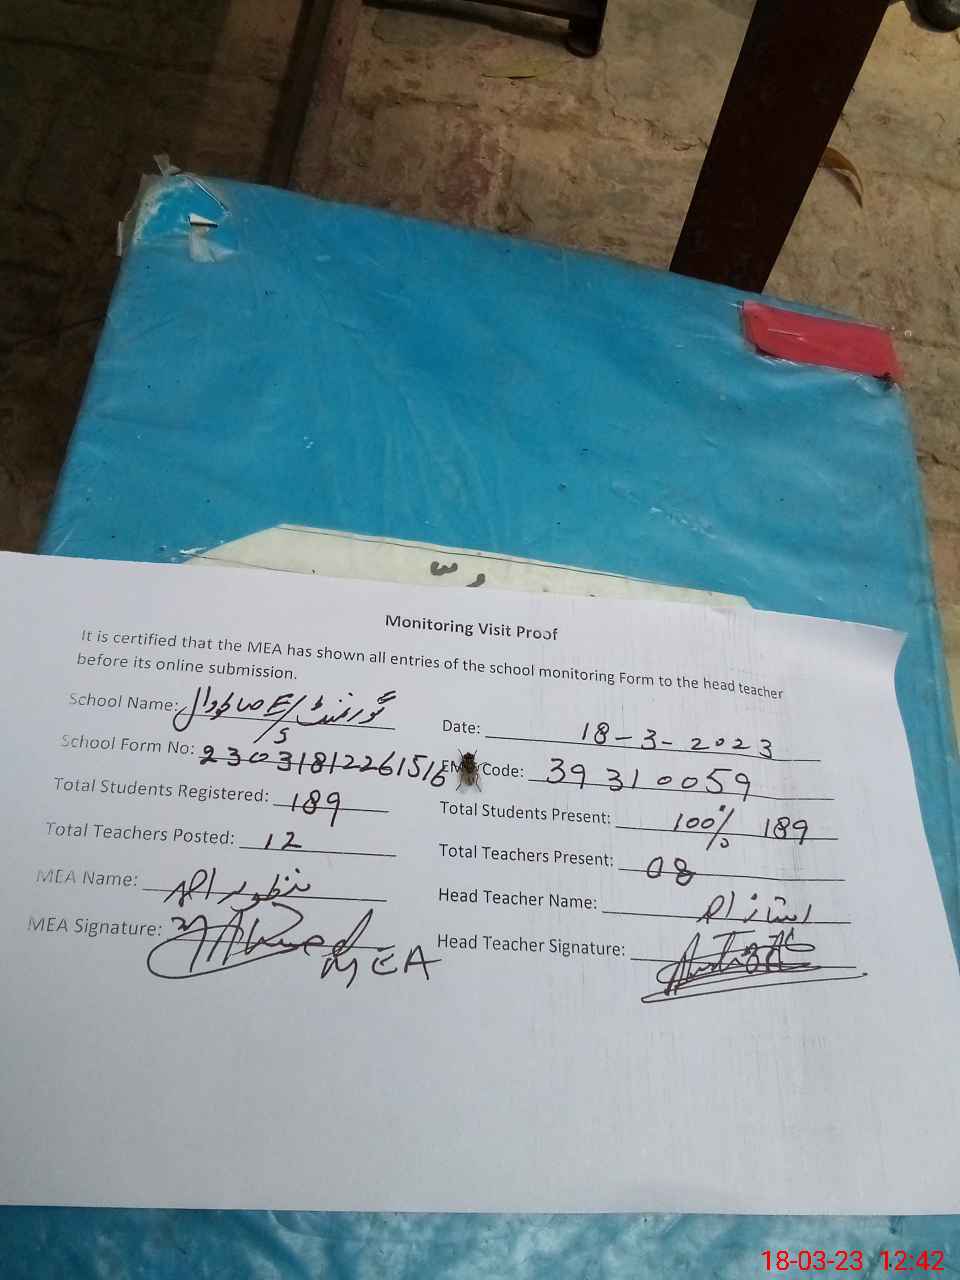 Monitoring Visit Proof
It is certified that the MEA has shown all entries of the school monitoring Form to the head teacher
before its online submission.
School Name: گورنمنٹ E/S
Date: 18-3-2023
School Form No: 23031812261516
Code: 39310059
Total Students Registered: 189
Total Students Present: 100% 189
Total Teachers Posted: 12
Total Teachers Present: 08
MEA Name: منظور احمد
Head Teacher Name:
MEA Signature: MEA
Head Teacher Signature:
18-03-23 12:42